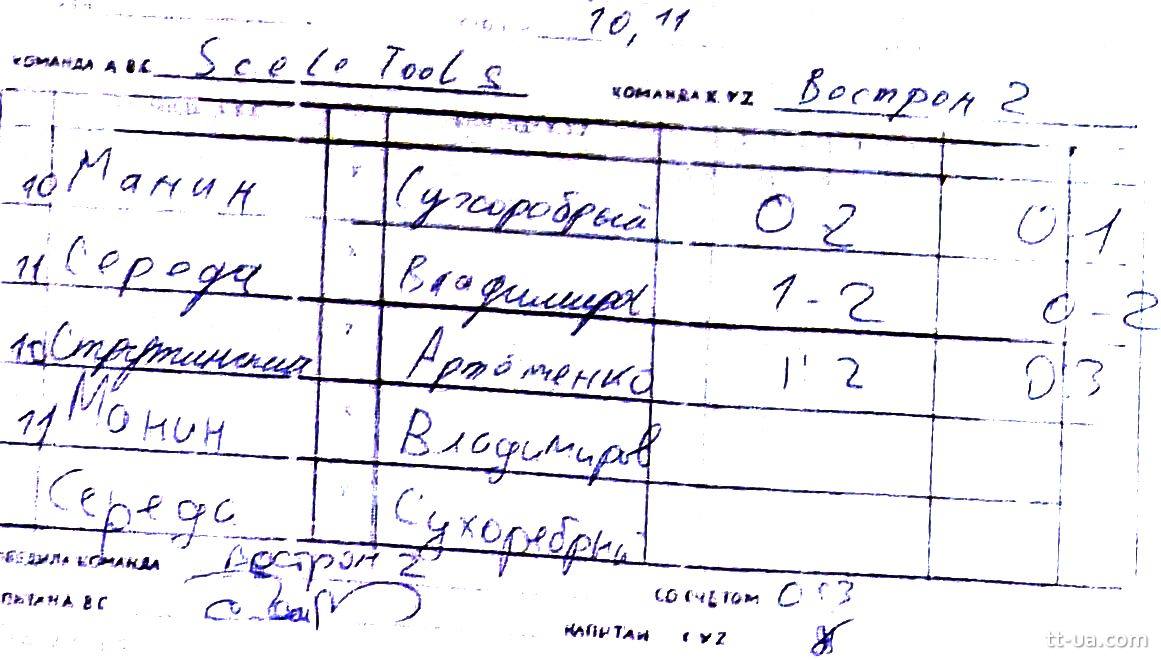 10, 11
КОМАНДА АВС Scelo Tools КОМАНДА Х.YZ Вострон 2
10 Манин Сухоробрый 0 2 0 1
11 Середа Владимиров 1-2 0-2
10 Струтинский Артоменко 1:2 0:3
11 Манин Владимиров
Середа Сухоребрый
КОМАНДА Вострон 2
СО СЧЕТОМ 0:3
КАПИТАН YZ
tt-ua.com